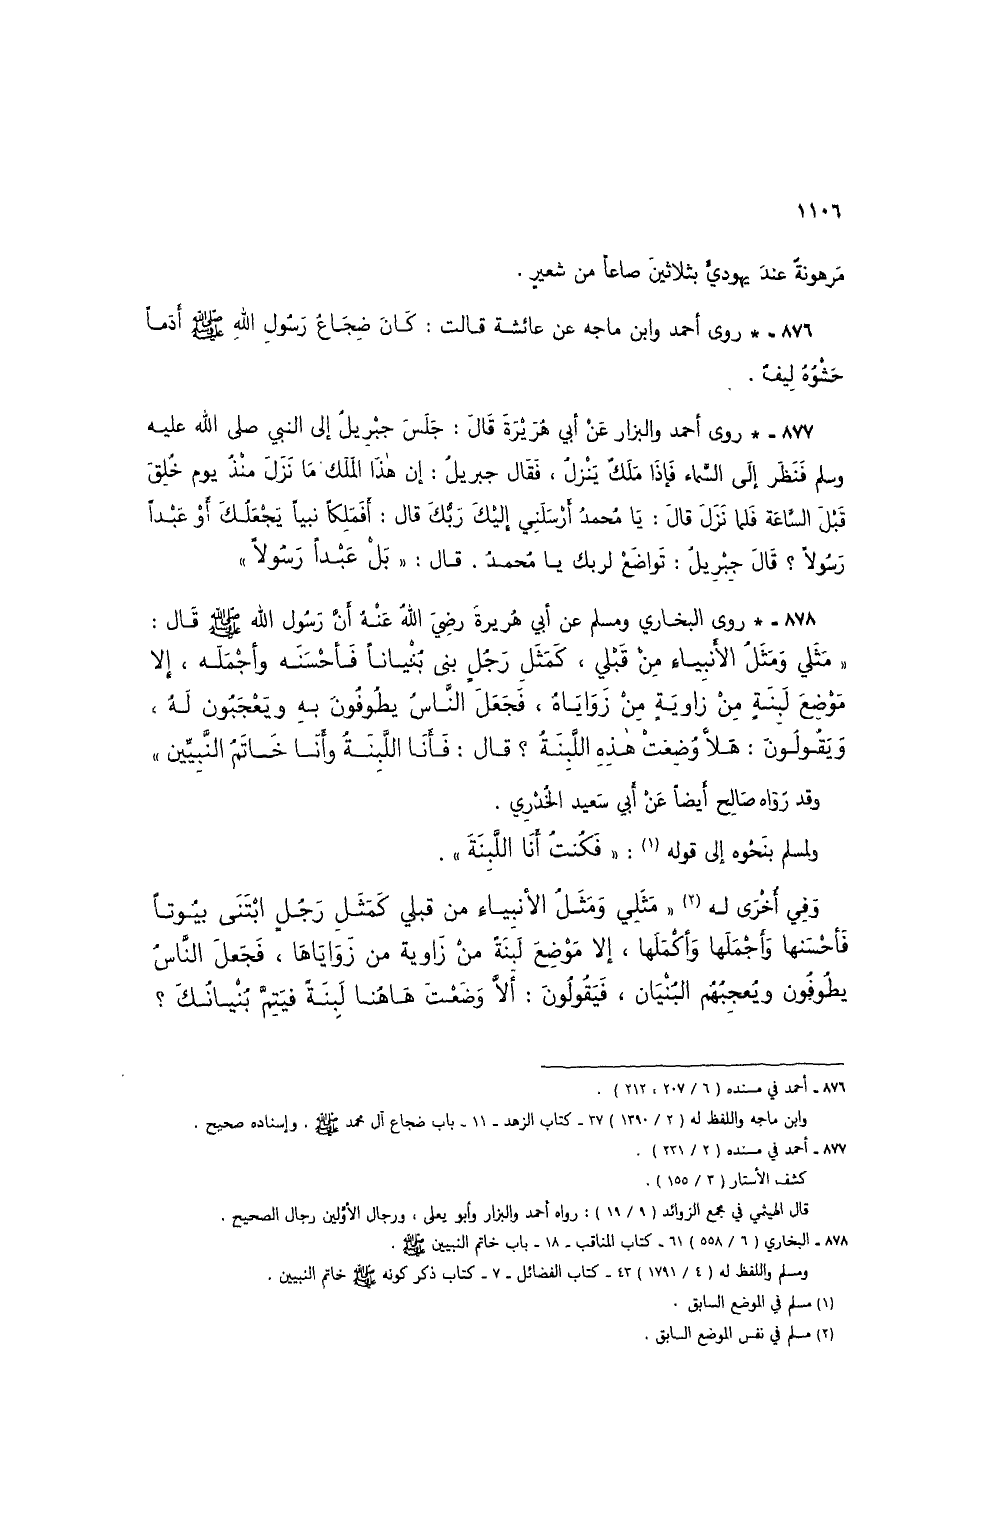 ١١٠٦
مَرهونةٌ عندَ يهوديٍّ بثلاثينَ صاعاً من شعيرٍ .
٨٧٦ - * روى أحمد وابن ماجه عن عائشة قالت : كَانَ ضِجَاعُ رَسُولِ اللهِ ﷺ أَدَماً
حَشْوُهُ لِيفٌ .
٨٧٧ - * روى أحمد والبزار عَنْ أبي هُرَيْرَةَ قَالَ : جَلَسَ جِبْرِيلُ إلى النبي صلى الله عليه
وسلم فَنَظَر إلَى السَّماء فَإذَا مَلَكٌ يَنْزِلُ ، فَقَال جبريلُ : إن هٰذَا المَلَك مَا نَزَلَ منْذُ يوم خُلِقَ
قَبْلَ السَّاعَة فَلما نَزَلَ قالَ : يَا مُحمدُ أَرْسَلَنِي إليْكَ رَبُّكَ قال : أَفَمَلِكاً نبياً يَجْعَلُكَ أوْ عَبْداً
رَسُولاً ؟ قَالَ جِبْرِيلُ : تَواضَعْ لربك يا مُحمدُ . قال : « بَلْ عَبْداً رَسُولاً »
٨٧٨ - * روى البخاري ومسلم عن أبي هُريرةَ رضِيَ اللهُ عَنْهُ أنَّ رَسُول الله ﷺ قَال :
« مَثَلي وَمَثَلُ الأنبياء مِنْ قَبْلي ، كَمَثَل رَجُلٍ بنى بُنْياناً فَأحْسَنَه وأجْمَلَه ، إلا
مَوْضِعَ لَبِنَةٍ مِنْ زاويَةٍ مِنْ زَوَايَاهُ ، فَجَعَلَ النَّاسُ يطُوفُونَ به ويَعْجَبُون لَهُ ،
وَيَقُولُونَ : هَلاَّ وُضِعَتْ هٰذِهِ اللَّبِنَةُ ؟ قال : فَأنَا اللَّبِنَةُ وأنَا خَاتَمُ النَّبِيِّين »
وقد رَوَاه صَالِح أيضاً عَنْ أبي سَعيد الخُدْرِي .
ولمسلم بنَحْوه إلى قوله (١) : « فَكُنتُ أَنَا اللَّبِنَةَ » .
وَفِي أُخْرَى له (٢) « مَثَلِي وَمَثَلُ الأنبياء من قبلي كَمَثَلِ رَجُلٍ ابْتَنَى بيُوتاً
فَأحْسَنها وَأَجْمَلَها وَأكْمَلَها ، إلا مَوْضِعَ لَبِنَةً منْ زَاوية من زَوَايَاهَا ، فَجَعلَ النَّاسُ
يطُوفُون ويُعجِبُهُم البُنْيَان ، فَيَقُولُونَ : ألاَّ وَضَعْتَ هَاهُنا لَبِنَةً فيَتِمَّ بُنْيانُكَ ؟
٨٧٦ - أحمد في مسنده ( ٦ / ٢٠٧ ، ٢١٢ ) .
وابن ماجه واللفظ له ( ٢ / ١٣٩٠ ) ٣٧ - كتاب الزهد - ١١ - باب ضجاع آل محمد ﷺ . وإسناده صحيح .
٨٧٧ - أحمد في مسنده ( ٢ / ٢٣١ ) .
كشف الأستار ( ٣ / ١٥٥ ) .
قال الهيثمي في مجمع الزوائد ( ٩ / ١٩ ) : رواه أحمد والبزار وأبو يعلى ، ورجال الأوّلين رجال الصحيح .
٨٧٨ - البخاري ( ٦ / ٥٥٨ ) ٦١ - كتاب المناقب - ١٨ - باب خاتم النبيين ﷺ .
ومسلم واللفظ له ( ٤ / ١٧٩١ ) ٤٣ - كتاب الفضائل - ٧ - كتاب ذكر كونه ﷺ خاتم النبيين .
(١) مسلم في الموضع السابق .
(٢) مسلم في نفس الموضع السابق .